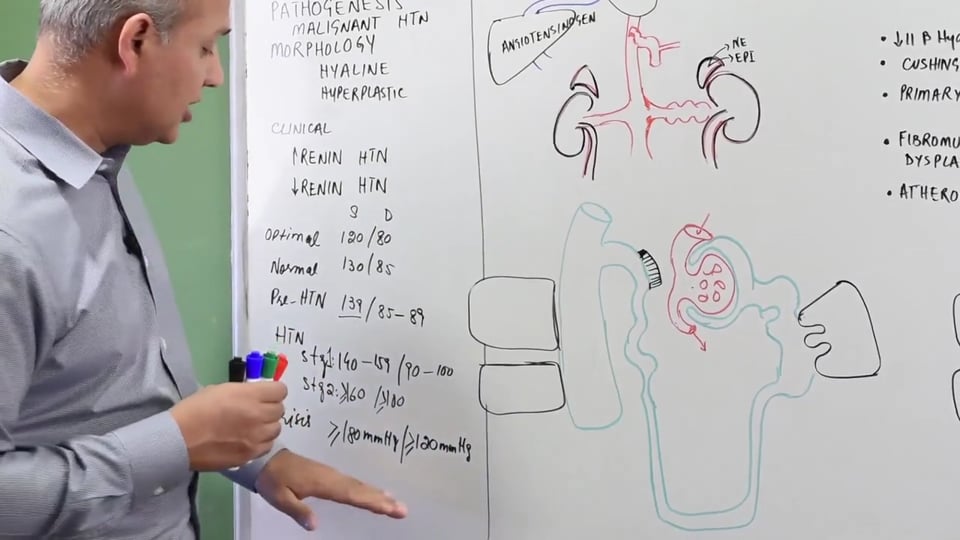 PATHOGENESIS
MALIGNANT HTN
MORPHOLOGY
HYALINE
HYPERPLASTIC
CLINICAL
↑RENIN HTN
↓RENIN HTN
S D
Optimal 120/80
Normal 130/85
Pre-HTN 139/85-89
HTN
Stg1: 140-159/90-100
Stg2: ≥160/≥100
risis
≥180mmHg/≥120mmHg
ANGIOTENSINOGEN
NE
EPI
• ↓11 β Hy
• CUSHING
• PRIMARY
• FIBROMU
DYSPLA
• ATHERO